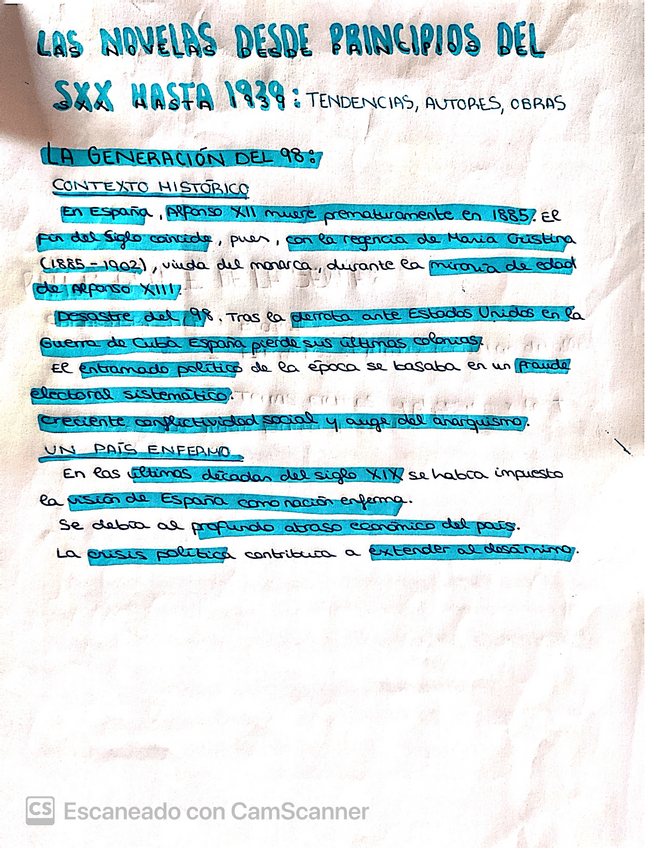 LAS NOVELAS DESDE PRINCIPIOS DEL
SXX HASTA 1939: TENDENCIAS, AUTORES, OBRAS
LA GENERACIÓN DEL 98:
CONTEXTO HISTÓRICO
En España, Alfonso XII muere prematuramente en 1885. El
fin del siglo coincide, pues, con la regencia de María Cristina
(1885-1902), viuda del monarca, durante la minoría de edad
de Alfonso XIII.
Desastre del 98. Tras la derrota ante Estados Unidos en la
Guerra de Cuba España pierde sus últimas colonias.
El entramado político de la época se basaba en un fraude
electoral sistemático.
Creciente conflictividad social y auge del anarquismo.
UN PAÍS ENFERMO
En las últimas décadas del siglo XIX se había impuesto
la visión de España como nación enferma.
Se debía al profundo atraso económico del país.
La crisis política contribuía a extender al desánimo.
CS Escaneado con CamScanner